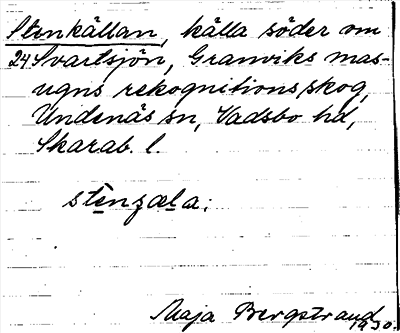 Stenkällan, källa söder om
24 Svartsjön, Granviks mas-
ugns rekognitionsskog,
Undenäs sn, Vadsbo hd,
Skarab. l.
Maja Bergstrand 1930.